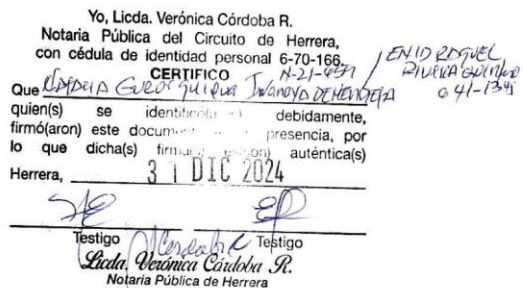 Yo, Licda. Verónica Córdoba R.
Notaria Pública del Circuito de Herrera,
con cédula de identidad personal 6-70-166.
CERTIFICO N-21-
ENID RAQUEL
RIVERA
Que Ivanova DE MENDIETA
quien(s) se debidamente,
firmó(aron) este presencia, por
lo que dicha(s) auténtica(s)
Herrera, 31 DIC 2024
Testigo Testigo
Licda. Verónica Córdoba R.
Notaria Pública de Herrera